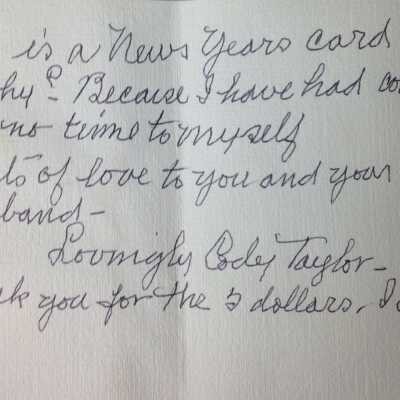 is a New Years card
hy? Because I have had co
no time to myself
ts of love to you and your
band-
Lovingly Codi Taylor-
k you for the 5 dollars, I